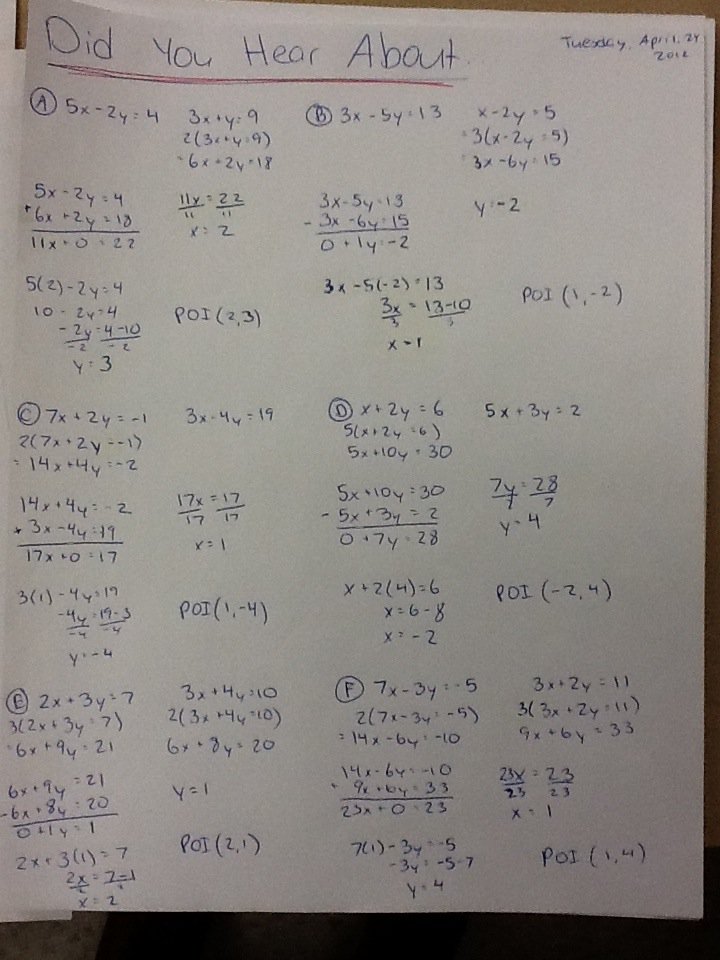 Did You Hear About
Tuesday, April, 24
2012
A 5x-2y=4
3x+y=9
2(3x+y=9)
=6x+2y=18
5x-2y=4
+6x+2y=18
11x+0=22
11x=22
11 11
x=2
5(2)-2y=4
10-2y=4
-2y=4-10
-2 -2
y=3
POI(2,3)
B 3x-5y=13
x-2y=5
=3(x-2y=5)
=3x-6y=15
3x-5y=13
-3x-6y=15
0+1y=-2
y=-2
3x-5(-2)=13
3x=13-10
3 3
x=1
POI(1,-2)
C 7x+2y=-1
3x-4y=19
2(7x+2y=-1)
=14x+4y=-2
14x+4y=-2
+3x-4y=19
17x+0=17
17x=17
17 17
x=1
3(1)-4y=19
-4y=19-3
-4 -4
y=-4
POI(1,-4)
D x+2y=6
5x+3y=2
5(x+2y=6)
5x+10y=30
5x+10y=30
-5x+3y=2
0+7y=28
7y=28
7 7
y=4
x+2(4)=6
x=6-8
x=-2
POI(-2,4)
E 2x+3y=7
3x+4y=10
3(2x+3y=7)
2(3x+4y=10)
=6x+9y=21
6x+8y=20
6x+9y=21
-6x+8y=20
0+1y=1
y=1
2x+3(1)=7
2x=7-1
2
x=2
POI(2,1)
F 7x-3y=-5
3x+2y=11
2(7x-3y=-5)
3(3x+2y=11)
=14x-6y=-10
9x+6y=33
14x-6y=-10
+9x+6y=33
23x+0=23
23x=23
23 23
x=1
7(1)-3y=-5
-3y=-5-7
y=4
POI(1,4)